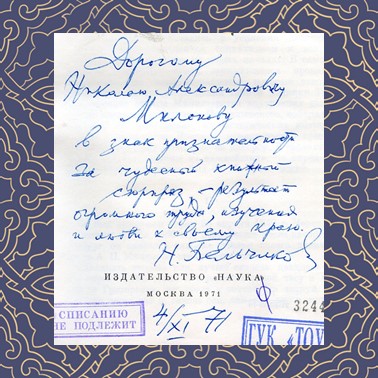 Дорогому
Николаю Александровичу
Милонову
в знак признательности
за чудесный книжный
сюрприз, - результат
огромного труда, изучения
и любви к своему краю.
Н. Пальчиков
ИЗДАТЕЛЬСТВО «НАУКА»
МОСКВА 1971
3244
СПИСАНИЮ
НЕ ПОДЛЕЖИТ
4/XI 71
ГУК «ТОУ